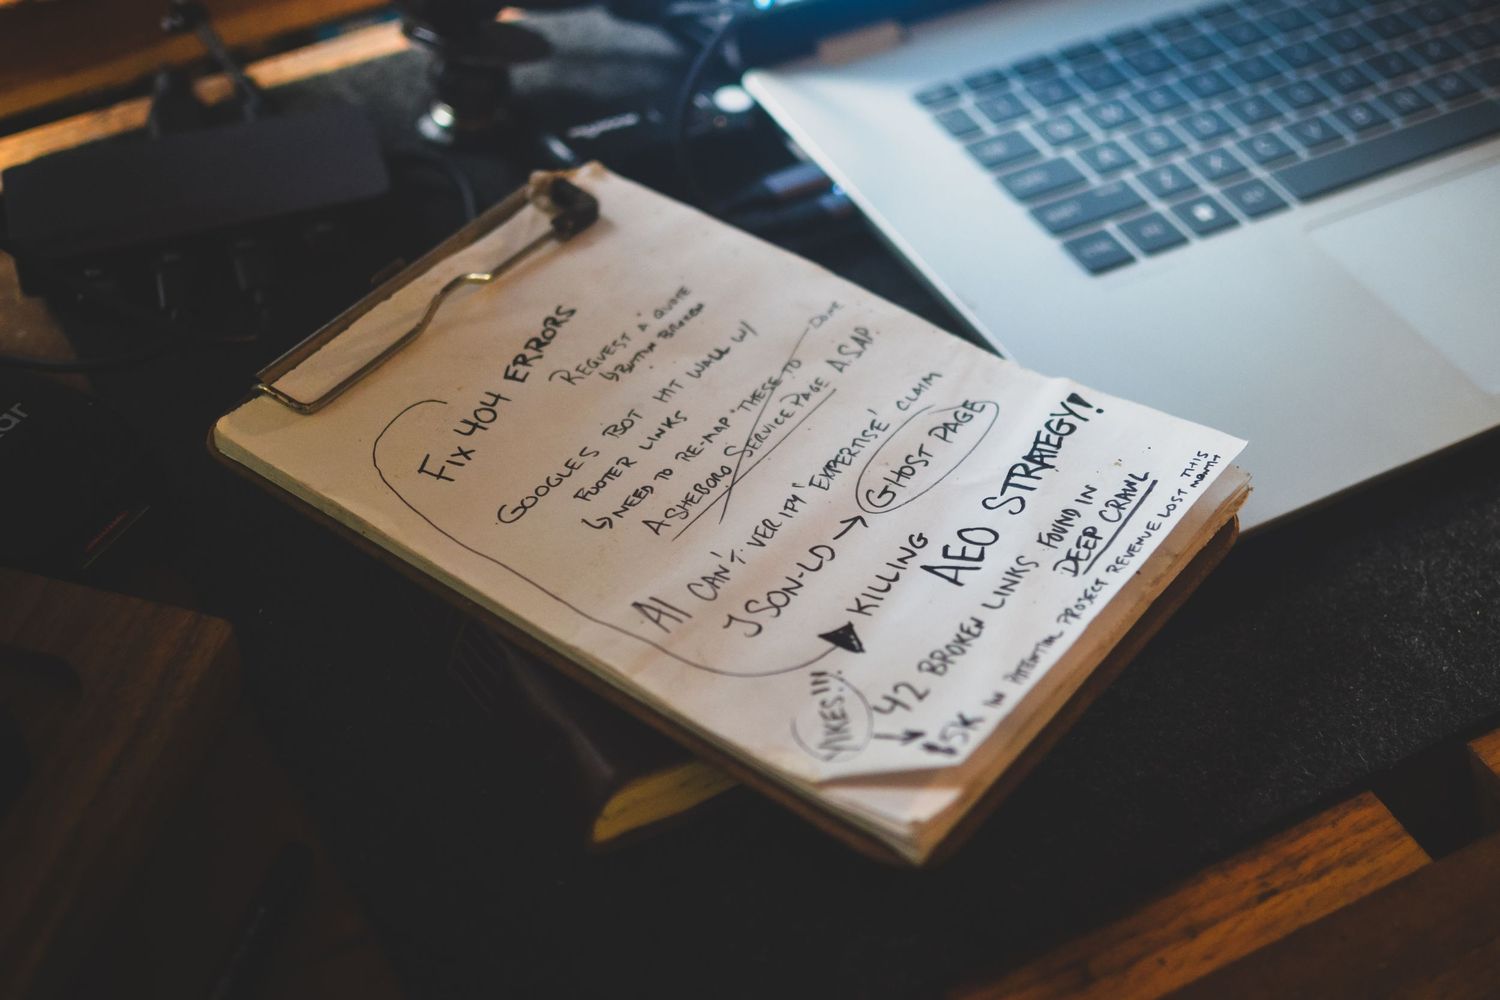 FIX 404 ERRORS
REQUEST A QUOTE
↳ BUTTON BROKEN
GOOGLES BOT HIT WALL W/
FOOTER LINKS
↳ NEED TO RE-MAP THESE TO
DONE
ASHEBORO SERVICE PAGE A.S.A.P.
AI CAN'T VERIFY 'EXPERTISE' CLAIM
JSON-LD → GHOST PAGE
KILLING
AEO STRATEGY!
42 BROKEN LINKS FOUND IN
DEEP CRAWL
YIKES!!!
↳ $5K IN POTENTIAL PROJECT REVENUE LOST THIS
MONTH